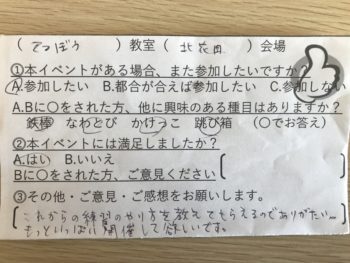 （てつぼう）教室（北花田）会場
①本イベントがある場合、また参加したいですか？
A.参加したい B.都合が合えば参加したい C.参加しない
A.Bに〇をされた方、他に興味のある種目はありますか？
鉄棒 なわとび かけっこ 跳び箱 （〇でお答え）
②本イベントには満足しましたか？
A.はい B.いいえ
Bに〇をされた方、ご意見ください
③その他・ご意見・ご感想をお願いします。
これからの練習のやり方を教えてもらえるのでありがたい〜
もっといっぱい開催して欲しいです。